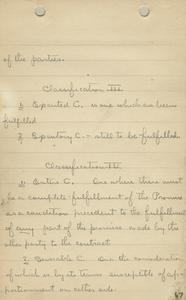 of the parties.
Classification III
1. Executed C. is one which has been
fulfilled
2. Executory C. - still to be fulfilled.
Classification IV.
1. Entire C. One where there must
be a complete fulfillment of the Promise
as a condition precedent to the fulfillment
of any part of the promise made by the
other party to the contract
2. Severable C. one the consideration
of which is by its terms susceptible of ap-
portionment on either side.